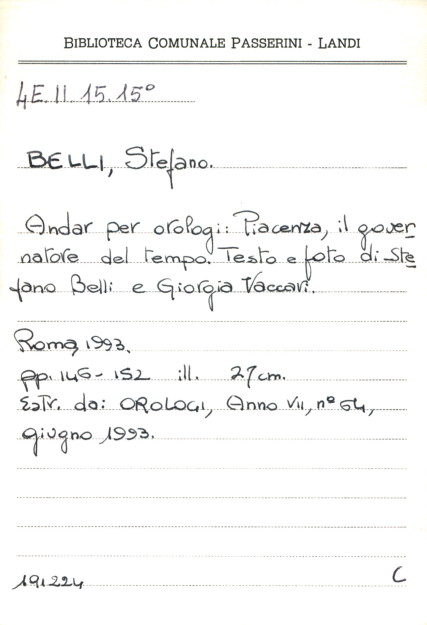 BIBLIOTECA COMUNALE PASSERINI - LANDI
4E.II.15.15°
BELLI, Stefano.
Andar per orologi: Piacenza, il gover
natore del tempo. Testo e foto di Ste
fano Belli e Giorgia Vaccari.
Roma, 1993.
pp. 146-152 ill. 27 cm.
Estr. da: OROLOGI, Anno VII, n° 64,
giugno 1993.
191224 C